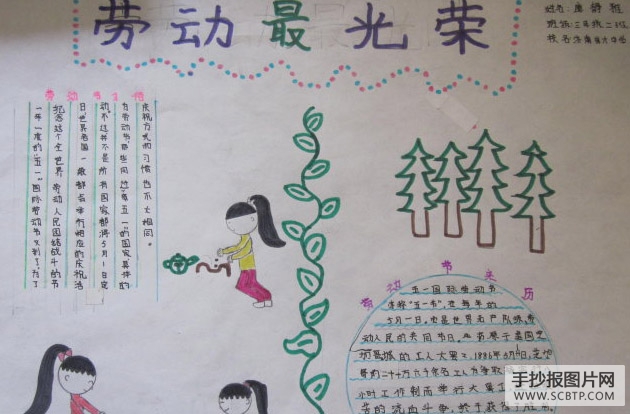 劳动最光荣
姓名:唐静雅
班级:三年级二班
劳动节
一年一度的"五一"国际劳动节又到了,为了
纪念这个全世界劳动人民团结战斗的节
日,世界各国一般都有举行相应的庆祝活
动。不过并不是所有国家都将5月1日定
为劳动节,那些同过"五一"的国家具体的
庆祝方式和习惯也不大相同。
劳动节来历
五一国际劳动节
亦称"五一节",在每年的
5月1日,它是世界无产队级,劳
动人民的共同节日。此节源于美国芝
加哥城的工人大罢工,1886年5月1日,芝加
哥的二十一万六千余名工人为争取
小时工作制而举行大罢工
苦的流血斗争,终于获得了胜
手抄报图片网
WWW.SCBTP.COM